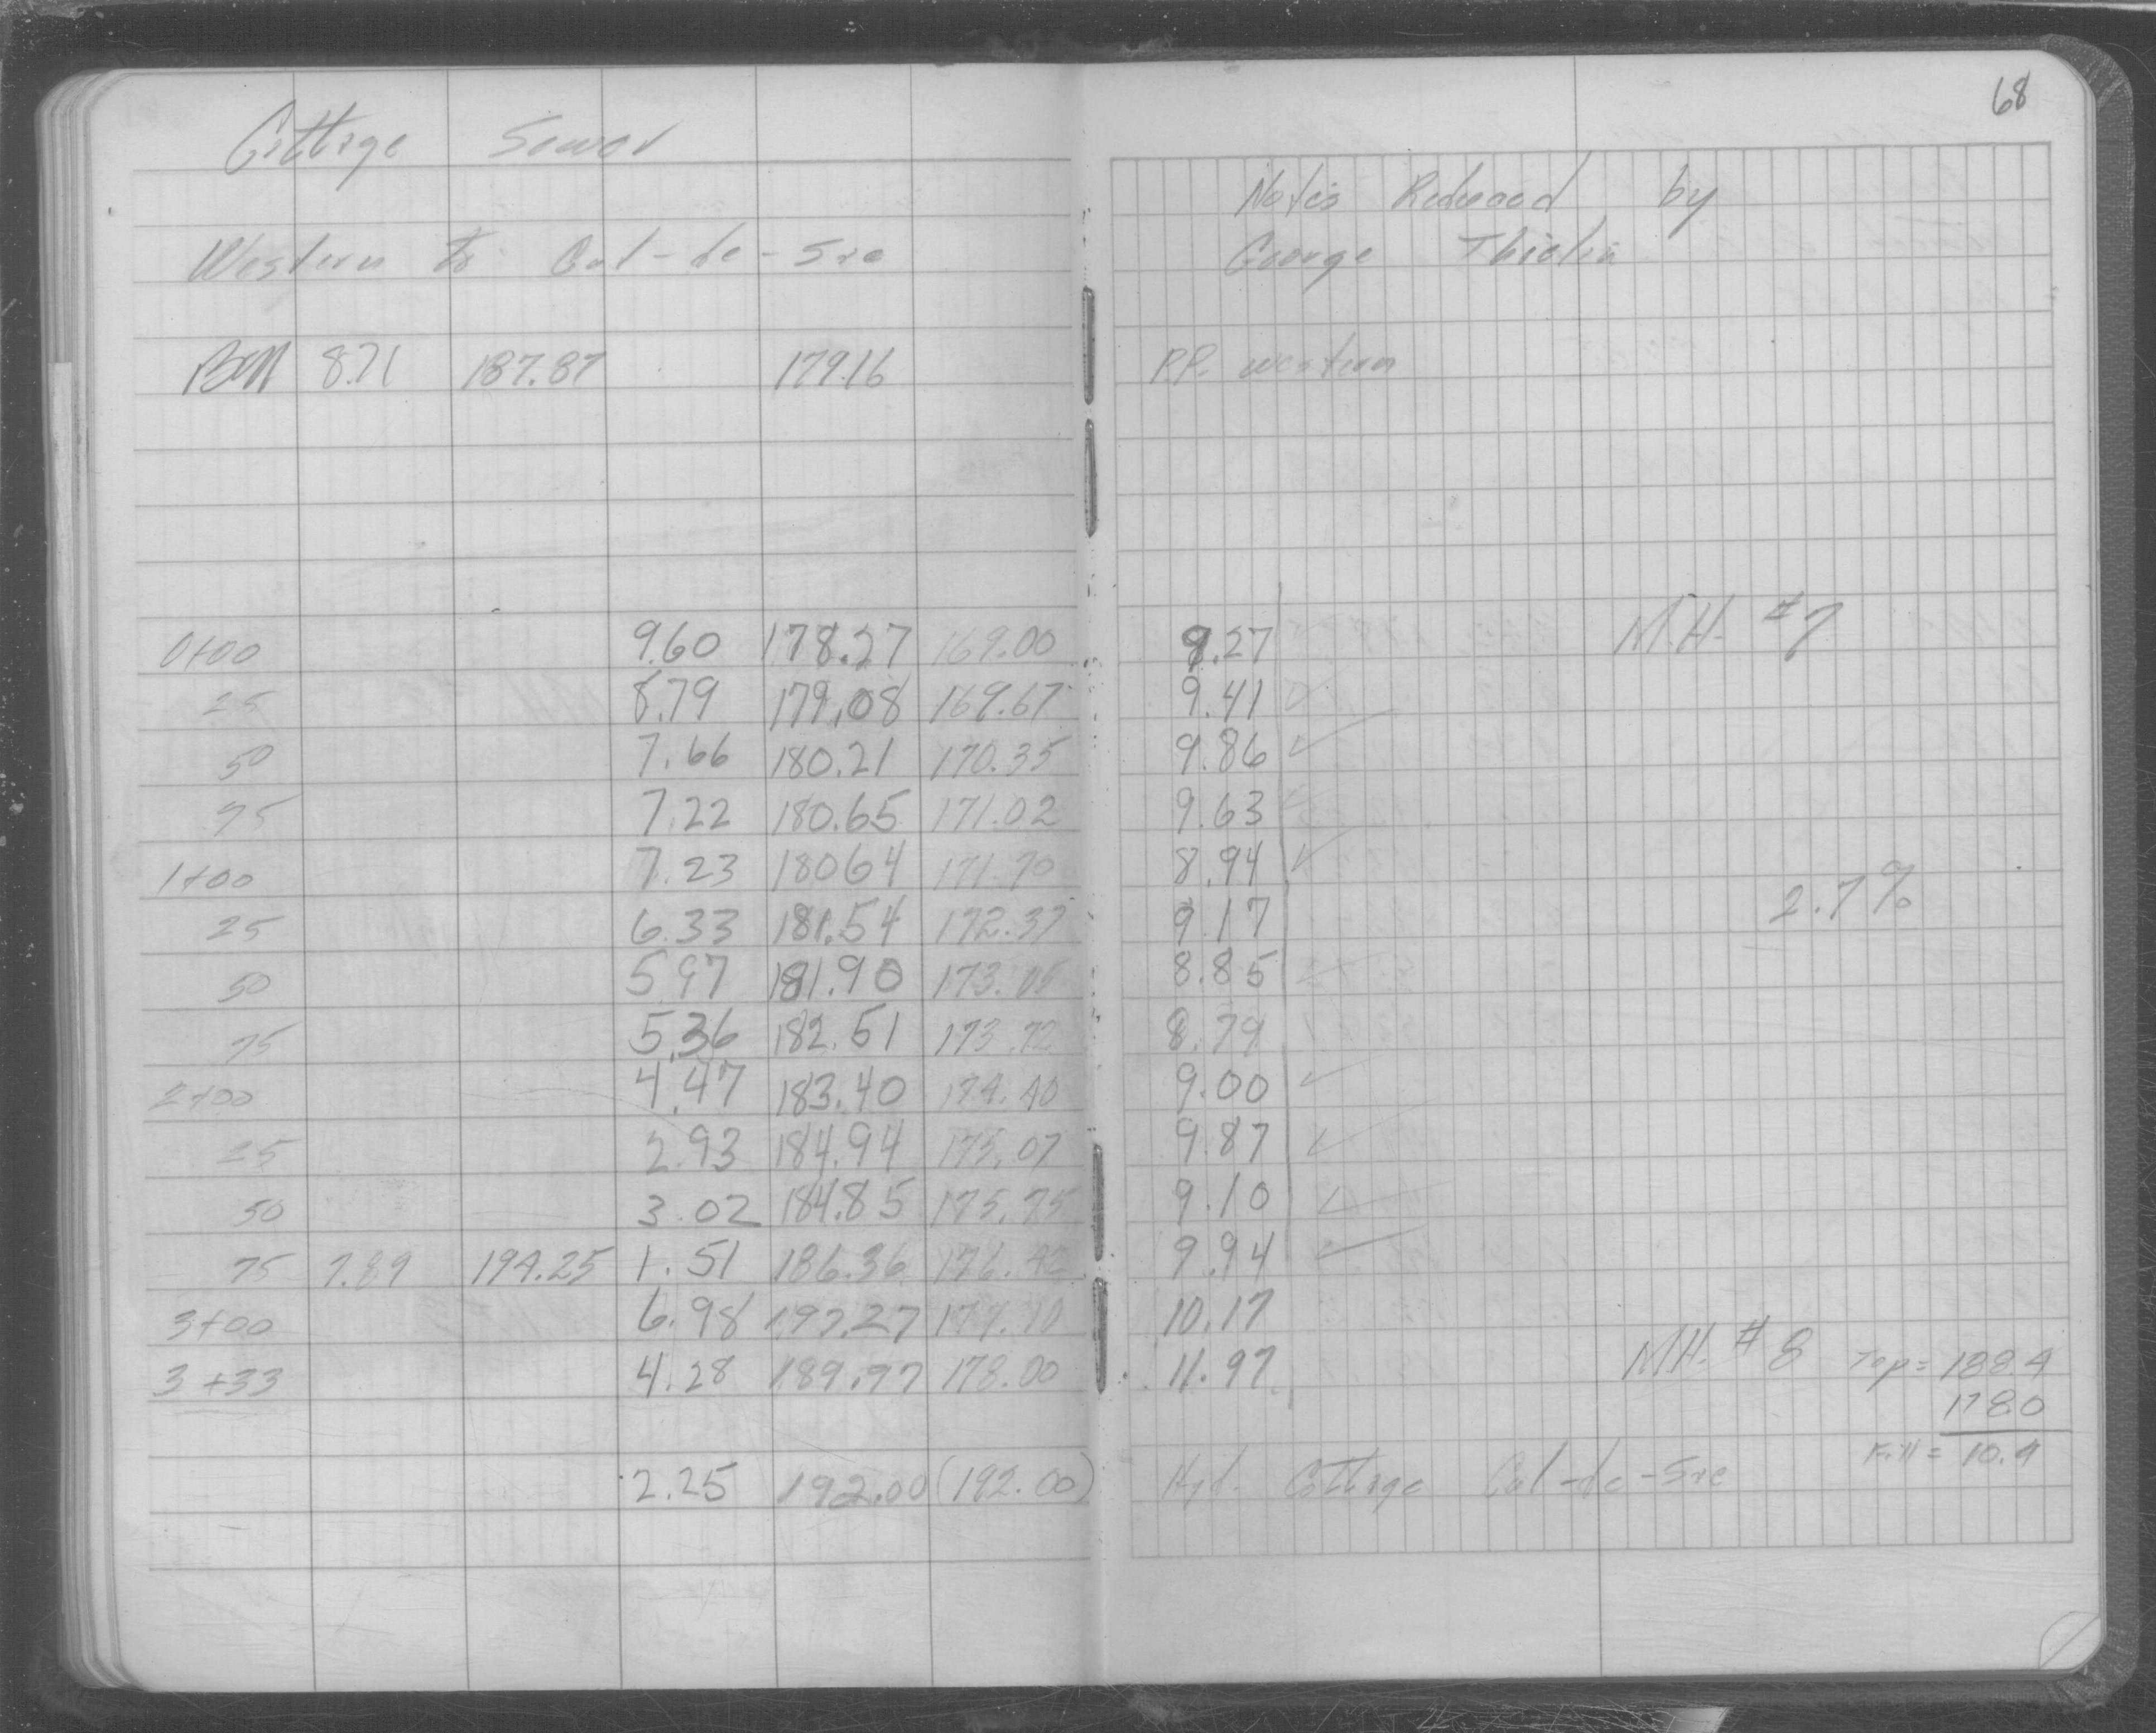 68
Cottage Sewer
Western to Cul-de-Sac
Notes Reduced by
George Thielen
BM 8.71 187.87 179.16 P.P. Western
0+00 9.60 178.27 169.00 9.27 M.H. #7
25 8.79 179.08 169.67 9.41
50 7.66 180.21 170.35 9.86 ✓
75 7.22 180.65 171.02 9.63
1+00 7.23 180.64 171.70 8.94 ✓
25 6.33 181.54 172.37 9.17 2.7%
50 5.97 181.90 173.05 8.85 ✓
75 5.36 182.51 173.72 8.79
2+00 4.47 183.40 174.40 9.00 ✓
25 2.93 184.94 175.07 9.87 ✓
50 3.02 184.85 175.75 9.10 ✓
75 7.89 194.25 1.51 186.36 176.42 9.94 ✓
3+00 6.98 10.17
3+33 4.28 189.97 178.00 11.97 M.H. #8 Top = 188.4
178.0
2.25 192.00 (192.00) Hyd. Cottage Cul-de-Sac = 10.4